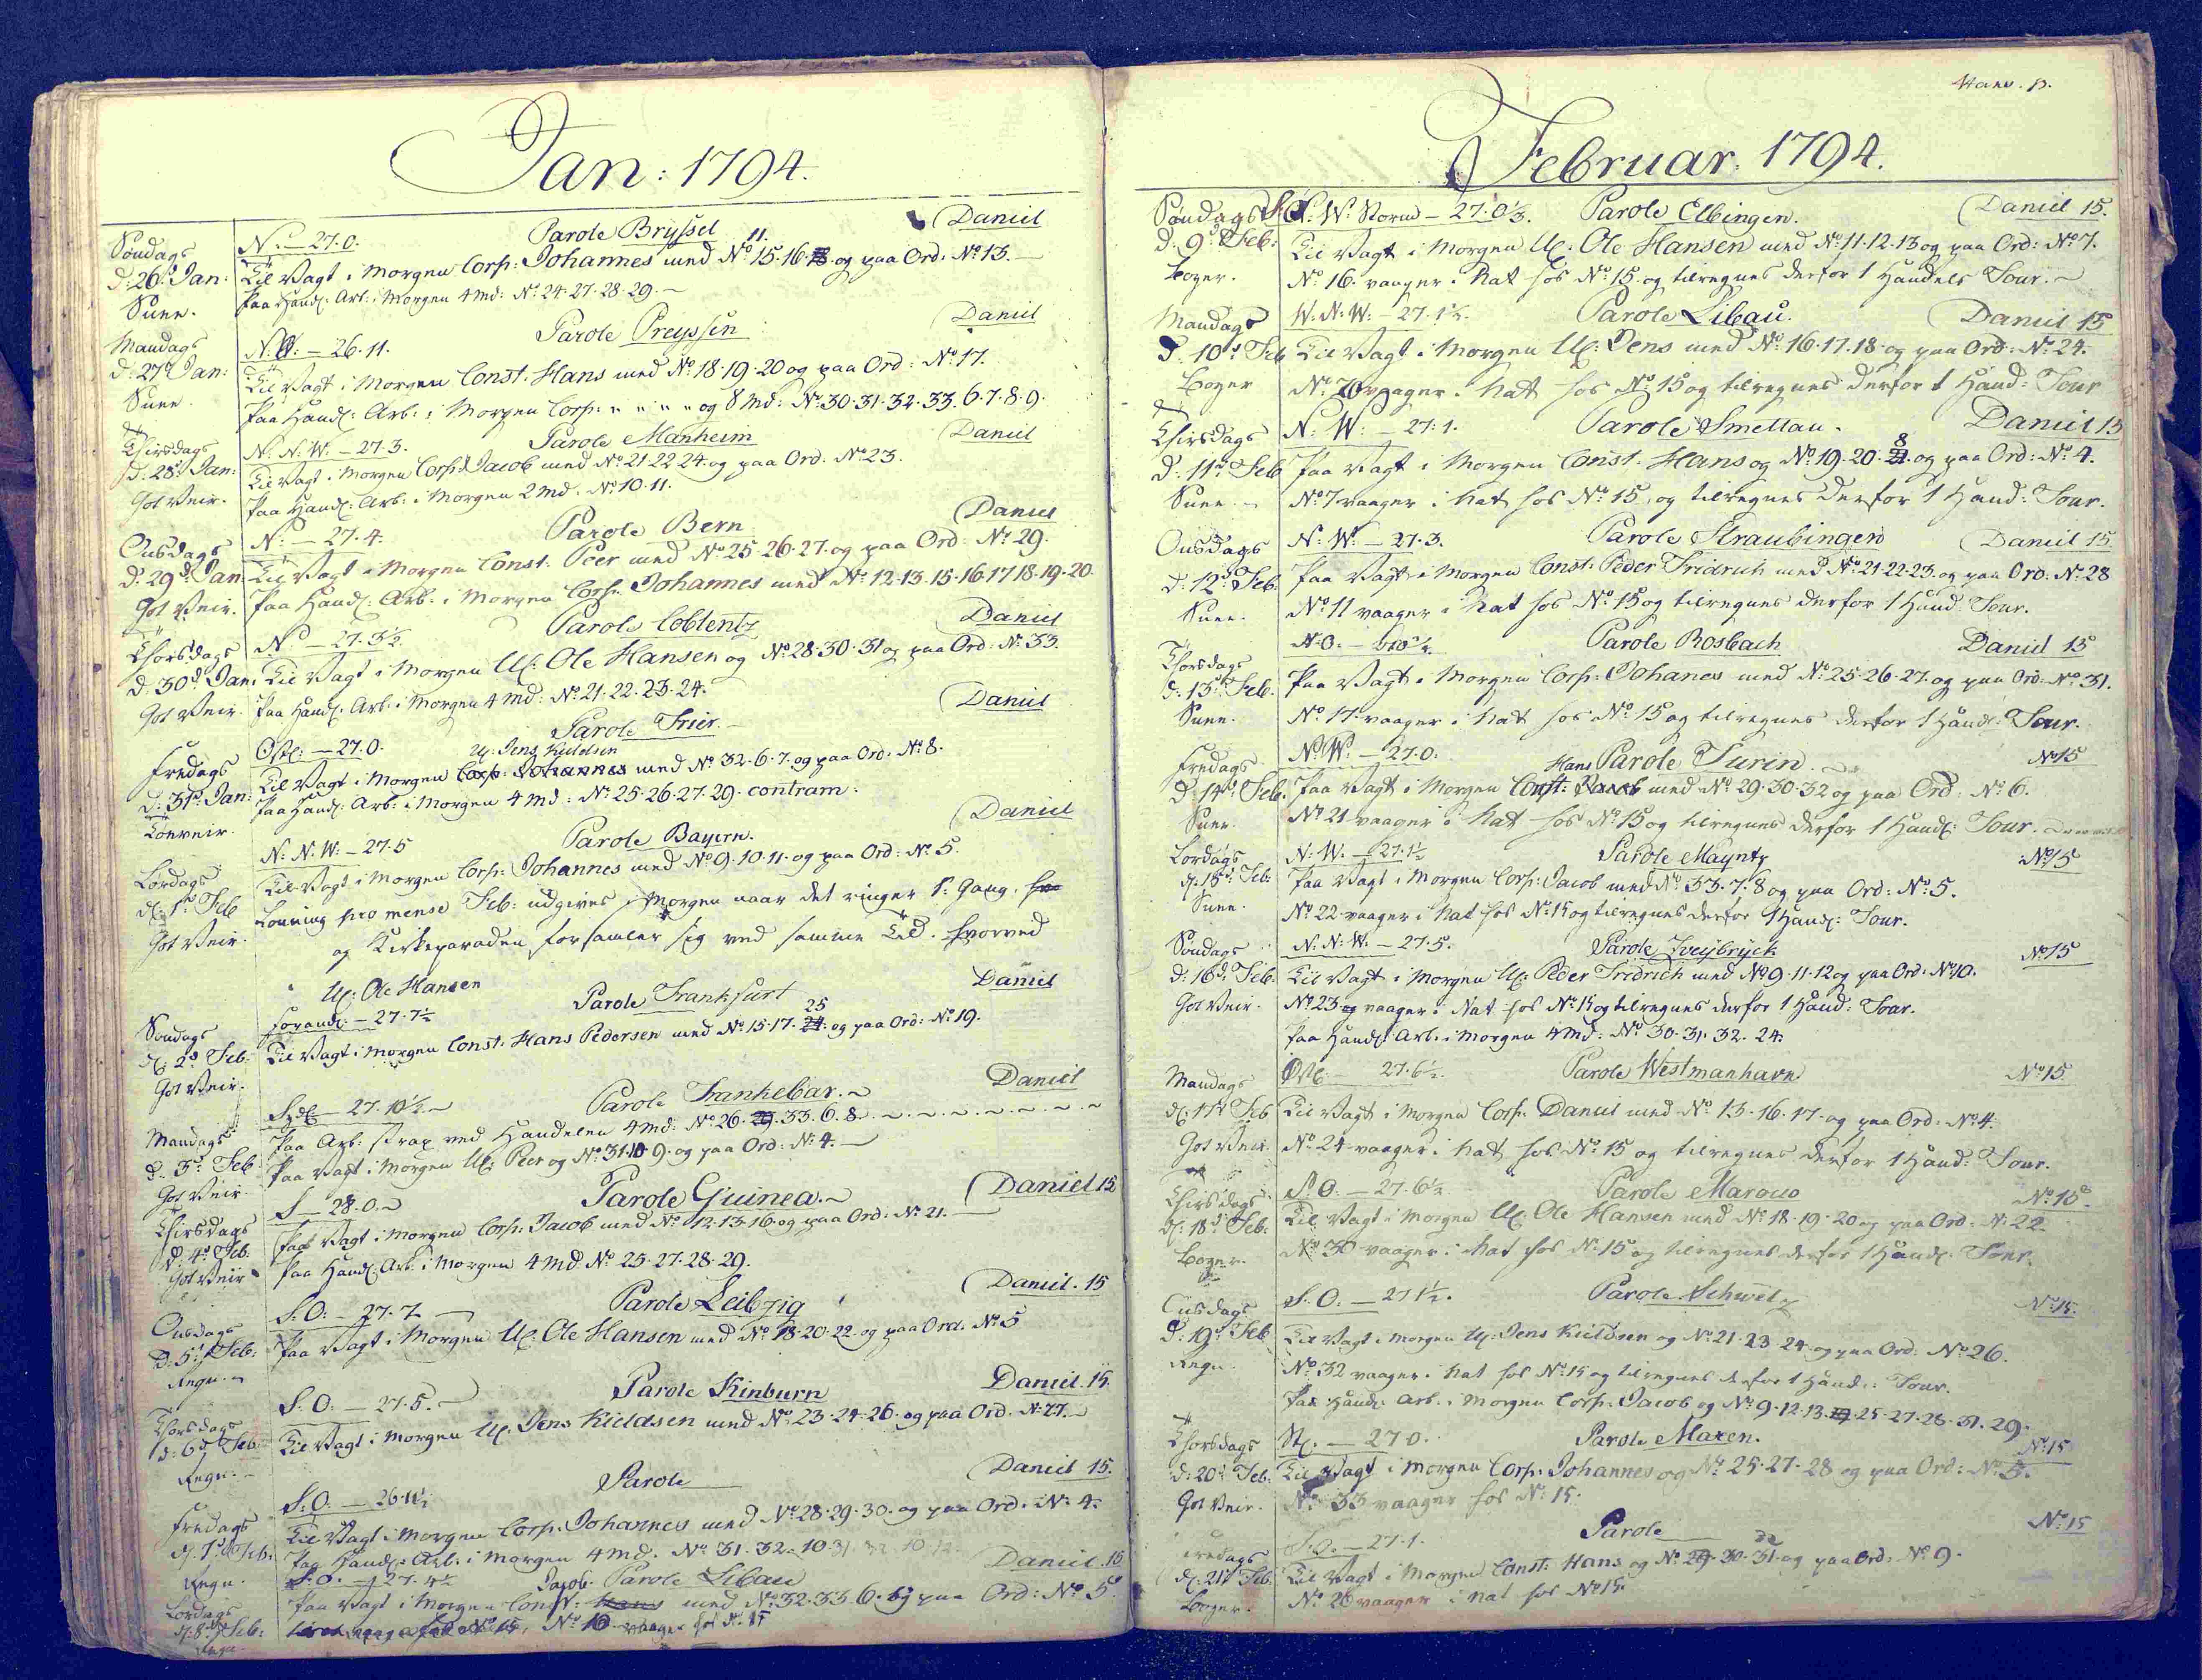 Jan: 1794.
Søndags d: 26d Jan: Snee.
N: — 27.0. Parole Bryssel Daniel
Til Vagt i Morgen Corp: Johannes med No 15.16. 11. og paa Ord: No 13.
Paa Handl: Arb: i Morgen 4 Md: No 24.27.28.29.
Mandags d: 27d Jan: Snee.
N.W: — 26.11. Parole Preyssen Daniel
Til Vagt i Morgen Const. Hans med No 18.19.20 og paa Ord: No 17.
Paa Handl: Arb: i Morgen Corp: " " " " og 8 Md: No 30.31.32.33.6.7.8.9.
Thirsdags d: 28d Jan: Got Veir.
N.N.W. — 27.3. Parole Manheim Daniel
Til Vagt i Morgen Corp: Jacob med No 21 22 24. og paa Ord. No 23.
Paa Handl: Arb: i Morgen 2 Md. No 10.11.
Onsdags d: 29d Jan: Got Veir.
N: — 27.4. Parole Bern Daniel
Til Vagt i Morgen Const: Peer med No 25.26.27. og paa Ord: No 29.
Paa Handl: Arb. i Morgen Corp. Johannes med No 12.13.15.16.17 18.19.20.
Thorsdags d: 30d Jan: Got Veir.
N — 27.3½ Parole Coblentz Daniel
Til Vagt i Morgen U: Ole Hansen og No 28.30.31 og paa Ord: No 33.
Paa Handl: Arb: i Morgen 4 Md: No 21.22.23.24.
Fredags d: 31d Jan: Töeveir.
Ostl: — 27.0. Parole Trier Daniel
U: Jens Kieldsen
Til Vagt i Morgen Corp: Johannes med No 32.6.7. og paa Ord. No 8.
Paa Handl: Arb: i Morgen 4 Md: No 25.26.27.29. contram:
Lørdags d: 1d Feb Got Veir.
N.N.W. — 27.5 Parole Bayern. Daniel
Til Vagt i Morgen Corp: Johannes med No 9.10.11. og paa Ord: No 5.
Lønning pro mense Feb: udgives i Morgen naar det ringer 1: Gang.
og Kirkeparaden forsamler sig ved samme Tid. hvorved
U: Ole Hansen
Søndags d: 2d Feb: Got Veir.
Forandl: — 27.7½ Parole Frankfurt Daniel
Til Vagt i Morgen Const. Hans Pedersen med No 15.17. 25 og paa Ord: No 19.
Mandags d: 3d Feb Got Veir.
Sydl — 27.10½ Parole Frankebar. Daniel
Paa Arb: strax ved Handelen 4 Md: No 26. 29. 33.6.8.
Paa Vagt i Morgen U: Peer og No 31 10 9. og paa Ord: No 4.
Thirsdags d: 4d Feb. Got Veir
S — 28.0. Parole Guinea. Daniel 15
Paa Vagt i Morgen Corp: Jacob med No 12.13.16. og paa Ord: No 21.
Paa Handl: Arb: i Morgen 4 Md No 25.27.28.29.
Onsdags d: 5d Feb: Regn.
S.O: — 27.7 Parole Leibzig Daniel. 15
Paa Vagt i Morgen U: Ole Hansen med No 18.20.22. og paa Ord: No 5
Thorsdags d: 6d Feb Regn.
S.O: — 27.5. Parole Kinburn Daniel. 15
Til Vagt i Morgen U: Jens Kieldsen med No 23.24.26. og paa Ord. No 27.
Fredags d: 7d Feb: Regn.
S.O. — 26.11½ Parole Daniel 15.
Til Vagt i Morgen Corp: Johannes med No 28.29.30. og paa Ord. No 4.
Paa Handl: Arb: i Morgen 4 Md. No 31.32.10.
Lørdags d: 8d Feb: Regn
S.O. — 27.4½ Jacob. Parole Libau Daniel. 15
Paa Vagt i Morgen Const: Hans med No 32.33.6. og paa Ord: No 5.
No 10 vaager hos No 15
Februar. 1794.
Søndags d: 9d Feb: Bøger.
N.W. Storm — 27.0⅓. Parole Elbingen. Daniel 15.
Til Vagt i Morgen U: Ole Hansen med No 11.12.13 og paa Ord: No 7.
No 16. vaager i Nat hos No 15 og tilregnes derfor 1 Handels Tour.
Mandags d: 10d Feb Bøger
W.N.W: — 27.1½. Parole Libau. Daniel 15
Til Vagt i Morgen U: Jens med No 16.17.18. og paa Ord: No 24.
No 20 vaager i Nat hos No 15 og tilregnes derfor 1 Hand: Tour
Thirsdags d: 11d Feb Snee.
N.W: — 27.1. Parole Smettau. Daniel 15
Paa Vagt i Morgen Const. Hans og No 19.20. 8 og paa Ord: No 4.
No 7 vaager i Nat hos No 15, og tilregnes derfor 1 Hand: Tour.
Onsdags d: 12d Feb: Snee.
N.W: — 27.3. Parole Straubingen Daniel 15
Paa Vagt i Morgen Const: Peder Fridrich med No 21.22.23. og paa Ord: No 28
No 11 vaager i Nat hos No 15 og tilregnes derfor 1 Hand: Tour.
Thorsdags d: 13d Feb. Snee.
N.O: — Parole Rosbach Daniel 15
Paa Vagt i Morgen Corp: Johanes med No 25.26.27. og paa Ord: No 31.
No 17 vaager i Nat hos No 15 og tilregnes derfor 1 Handl: Tour.
Fredags d: 14d Feb. Snee.
N.W. — 27.0. Hans Parole Turin. No 15
Paa Vagt i Morgen Const: Jacob med No 29.30.32 og paa Ord: No 6.
No 21 vaager i Nat hos No 15 og tilregnes derfor 1 Handl: Tour.
Lørdags d: 15d Feb: Snee.
N.W. — 27.1½ Parole Mayntz No 15
Paa Vagt i Morgen Corp: Jacob med No 33.7.8 og paa Ord: No 5.
No 22 vaager i Nat hos No 15 og tilregnes derfor 1 Handl: Tour.
Søndags d: 16d Feb: Got Veir.
N.N.W. — 27.5. Parole Zveybryck No 15
Til Vagt i Morgen U: Peder Fridrich med No 9.11.12 og paa Ord: No 10.
No 23 og vaager i Nat hos No 15 og tilregnes derfor 1 Hand: Tour.
Paa Handl: Arb: i Morgen 4 Md: No 30.31.32.24.
Mandags d: 17d Feb Got Veir
Ostl — 27.6½. Parole Westmanhavn No 15
Til Vagt i Morgen Corp: Daniel med No 13.16.17. og paa Ord: No 4.
No 24 vaager i Nat hos No 15 og tilregnes derfor 1 Hand: Tour.
Thirsdags d: 18d Feb: Bøger.
S.O: — 27.6½ Parole Maroco No 15.
Til Vagt i Morgen U: Ole Hansen med No 18.19.20 og paa Ord: No 22
No 30 vaager i Nat hos No 15 og tilregnes derfor 1 Handl: Tour.
Onsdags d: 19d Feb Regn.
S.O. — 27 1½. Parole Schweitz No 15.
Til Vagt i Morgen U: Jens Kieldsen og No 21.23.24 og paa Ord: No 26.
No 32 vaager i Nat hos No 15 og tilregnes derfor 1 Hand: Tour.
Paa Handl: Arb: i Morgen Corp: Jacob og No 9.12.13. 25.27.28.31.29.
Thorsdags d: 20d Feb. Got Veir.
Stl. — 27 0. Parole Maxen. No 15
Til Vagt i Morgen Corp: Johannes og No 25.27.28 og paa Ord: No 5.
No 33 vaager hos No 15.
Fredags d: 21d Feb. Bøger.
S.O. — 27.1. Parole No 15
Til Vagt i Morgen Const: Hans og No 29.30.31. og paa Ord: No 9.
No 26 vaager i Nat hos No 15.